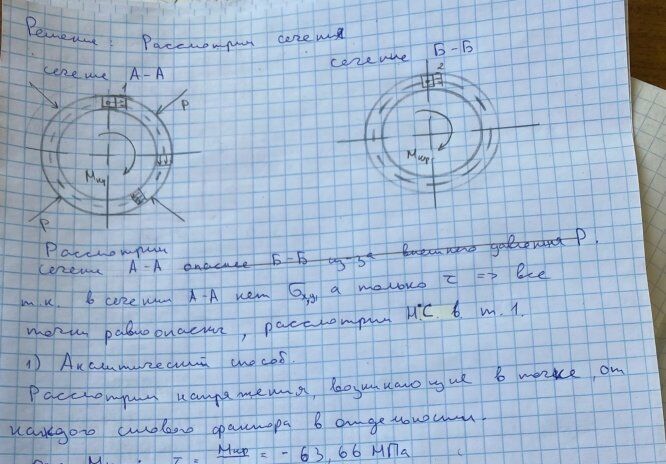 Решение: Рассмотрим сечения
сечение А-А
сечение Б-Б
1
2
P
Мкр
Мкр
P
Рассмотрим
сечение А-А опаснее Б-Б из-за внешнего давления P.
т.к. в сечении А-А нет σx,y, а только τ => все
точки равноопасны, рассмотрим Н.С. в т. 1.
1) Аналитический способ.
Рассмотрим напряжения, возникающие в точке, от
каждого силового фактора в отдельности.
τ = Мкр = - 63,66 МПа